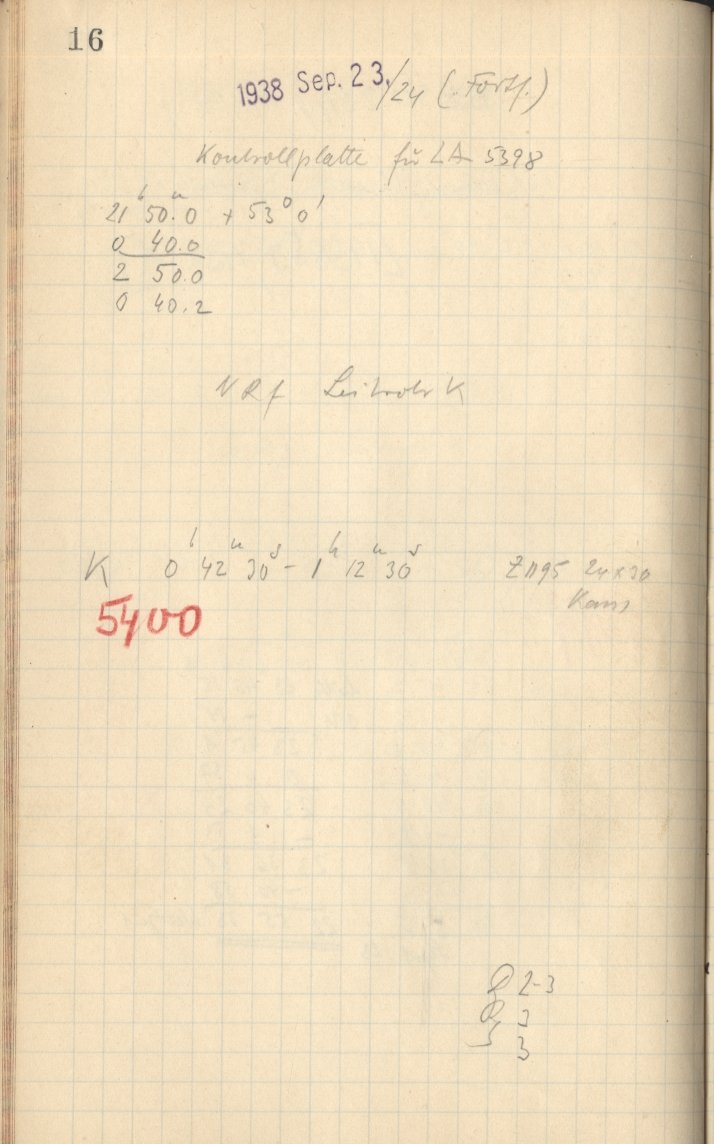 16
1938 Sep. 23./24 (. Forts.)
Kontrollplatte für LA 5398
21ʰ 50.ᵐ0 + 53⁰ 0'
0 40.0
2 50.0
0 40.2
Leitrohr K
K 0ʰ 42ᵐ 30ˢ - 1ʰ 12ᵐ 30ˢ 24 x 30
5400
2-3
3
3